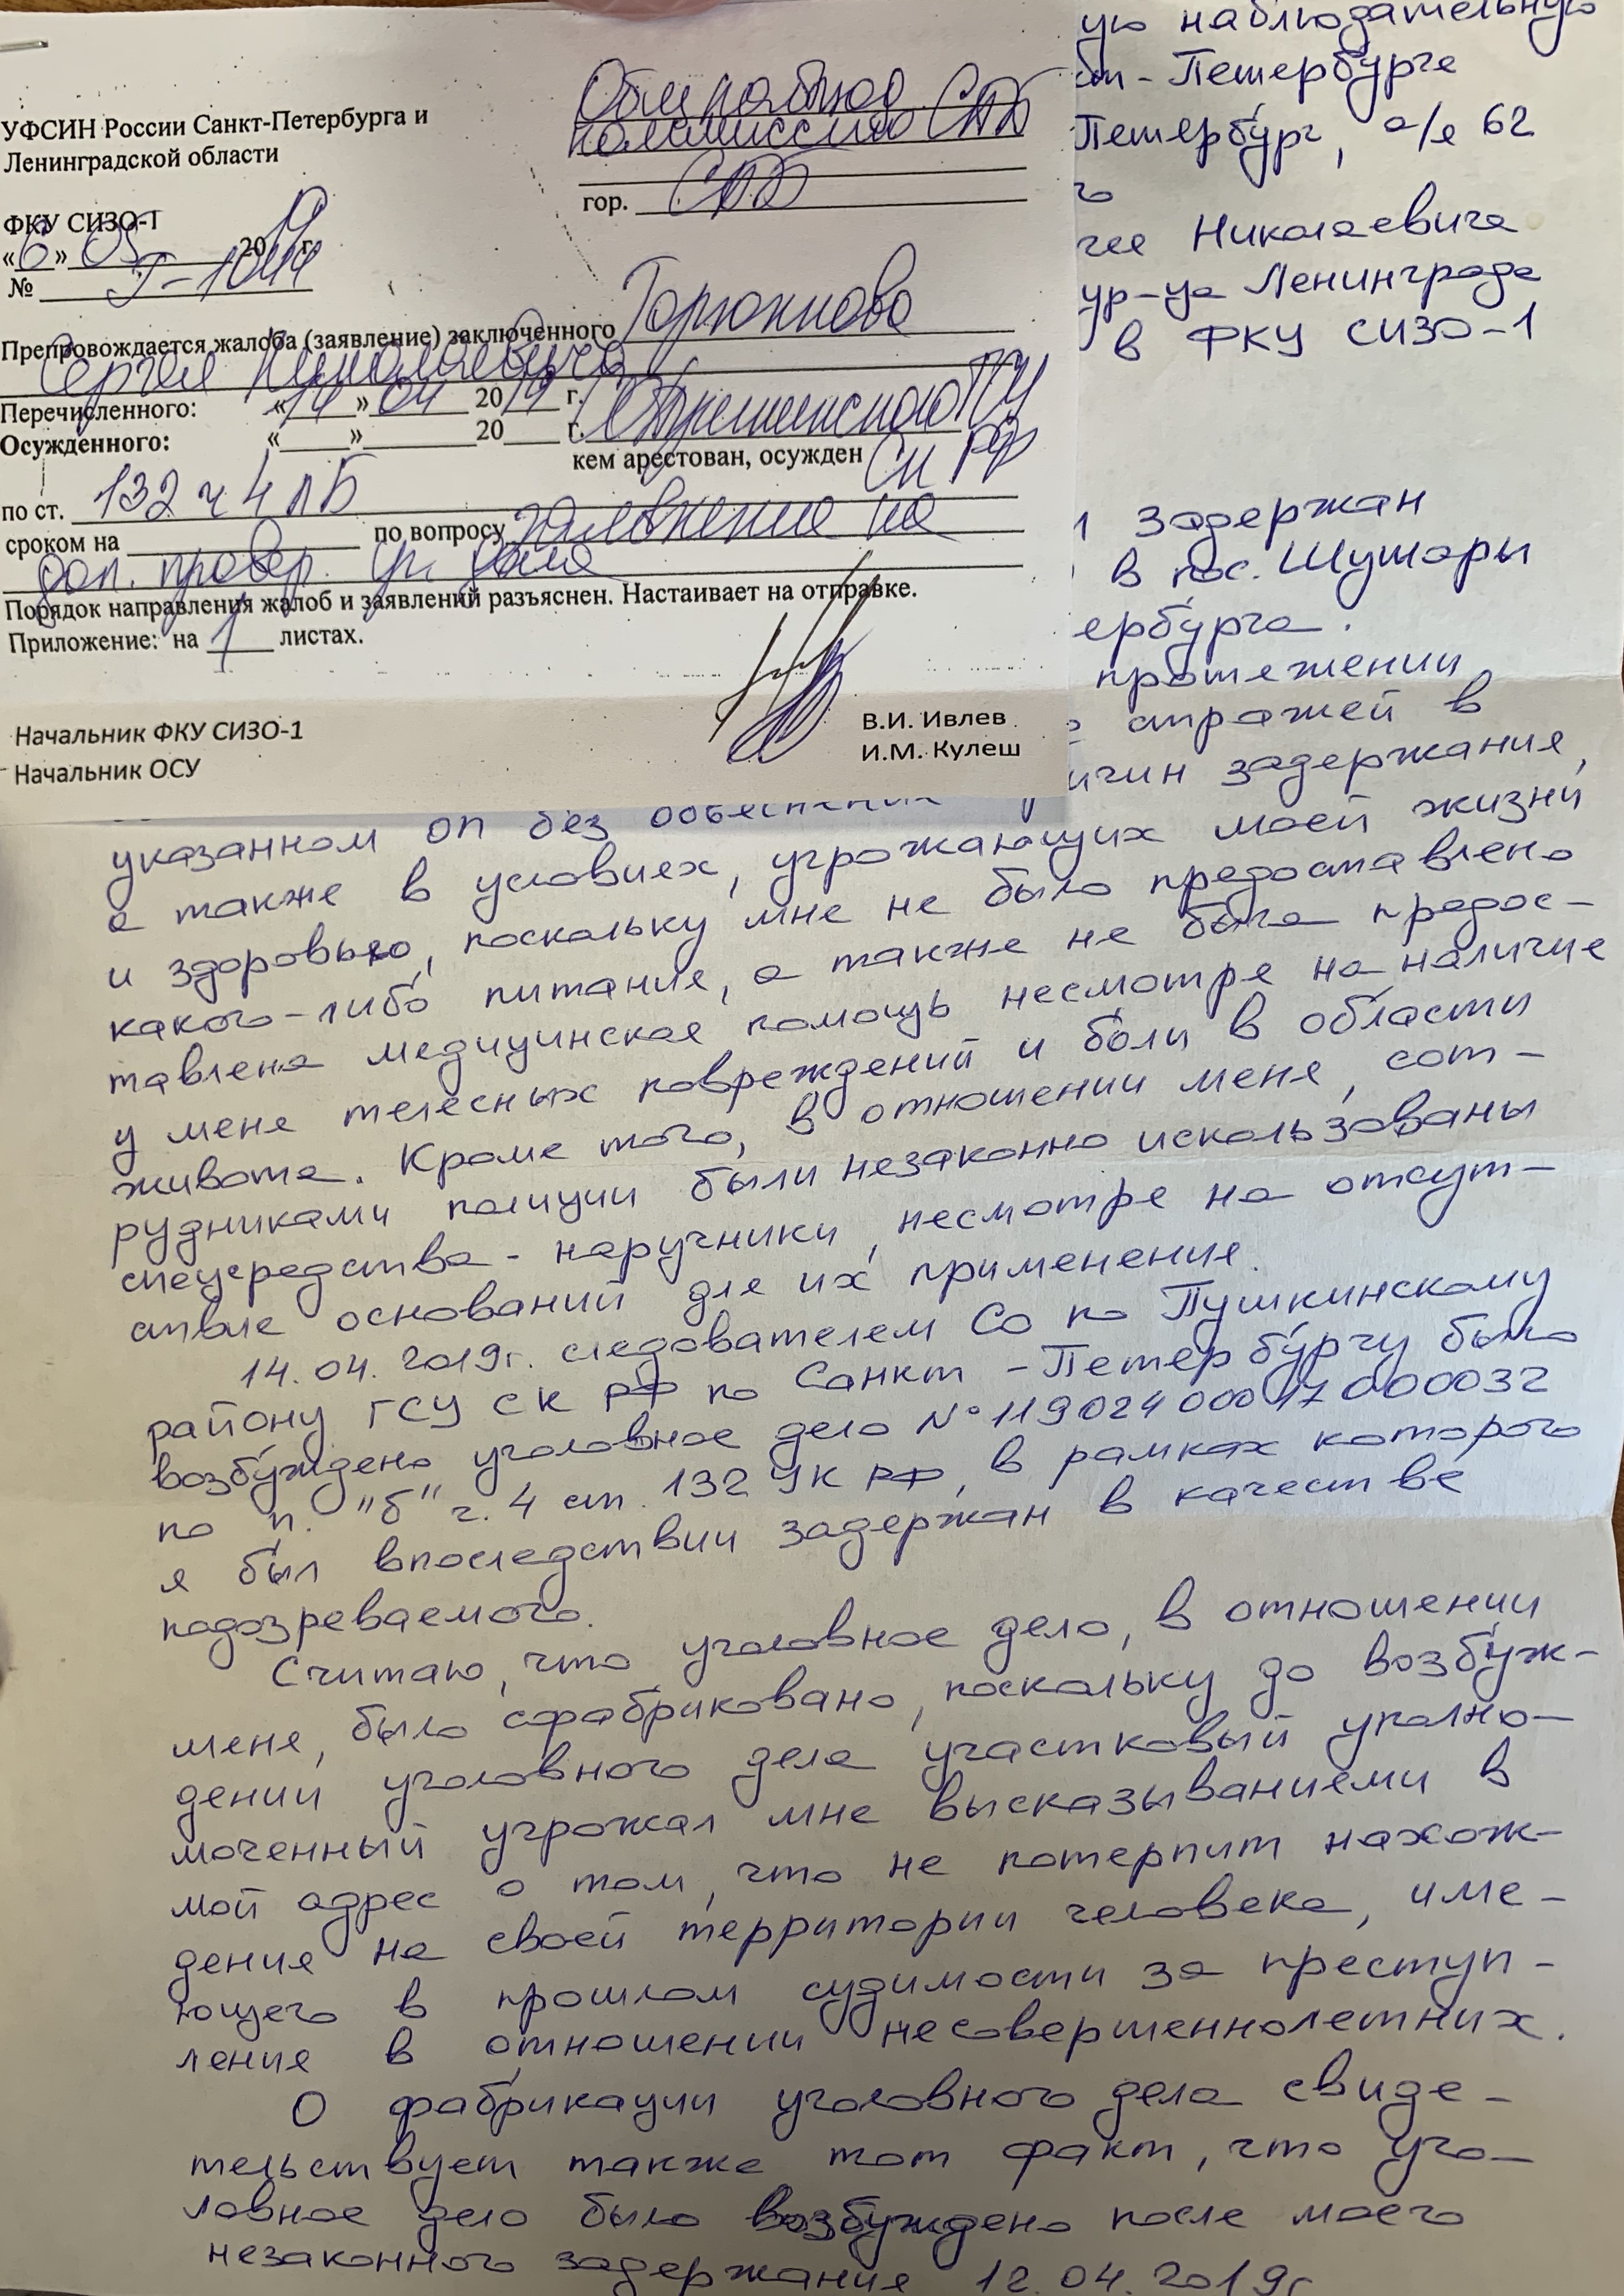 УФСИН России Санкт-Петербурга и
Ленинградской области
ФКУ СИЗО-1
«6» 05 2019 г.
№ Г-1044
комиссию СПБ
гор. СПБ
Препровождается жалоба (заявление) заключенного
Сергея Николаевича
Перечисленного: «14» 04 2019 г.
Осужденного: «    »     20    г.
кем арестован, осужден
СК РФ
по ст. 132 ч 4 п Б
сроком на      по вопросу заявление на
доп. провер. уг. дела
Порядок направления жалоб и заявлений разъяснен. Настаивает на отправке.
Приложение: на 1 листах.
Начальник ФКУ СИЗО-1 В.И. Ивлев
Начальник ОСУ И.М. Кулеш
ую наблюдательную
кт-Петербурге
Петербург, а/я 62
го
гея Николаевича
ур-ца Ленинграда
в ФКУ СИЗО-1
задержан
в пос. Шушары
ербурга.
протяжении
стражей в
ичин задержания,
указанном ОП без
а также в условиях, угрожающих моей жизни
и здоровью, поскольку мне не было предоставлено
какого-либо питания, а также не была предос-
тавлена медицинская помощь несмотря на наличие
у меня телесных повреждений и боли в области
живота. Кроме того, в отношении меня, сот-
рудниками полиции были незаконно использованы
спецсредства - наручники, несмотря на отсут-
ствие оснований для их применения.
14.04.2019г. следователем СО по Пушкинскому
району ГСУ СК РФ по Санкт-Петербургу было
возбуждено уголовное дело №11902400017000032
по п. "б" ч. 4 ст. 132 УК РФ, в рамках которого
я был впоследствии задержан в качестве
подозреваемого.
Считаю, что уголовное дело, в отношении
меня, было сфабриковано, поскольку до возбуж-
дении уголовного дела участковый уполно-
моченный угрожал мне высказываниями в
мой адрес о том, что не потерпит нахож-
дения на своей территории человека, име-
ющего в прошлом судимости за преступ-
ления в отношении несовершеннолетних.
О фабрикации уголовного дела свиде-
тельствует также тот факт, что уго-
ловное дело было возбуждено после моего
незаконного задержания 12.04.2019г